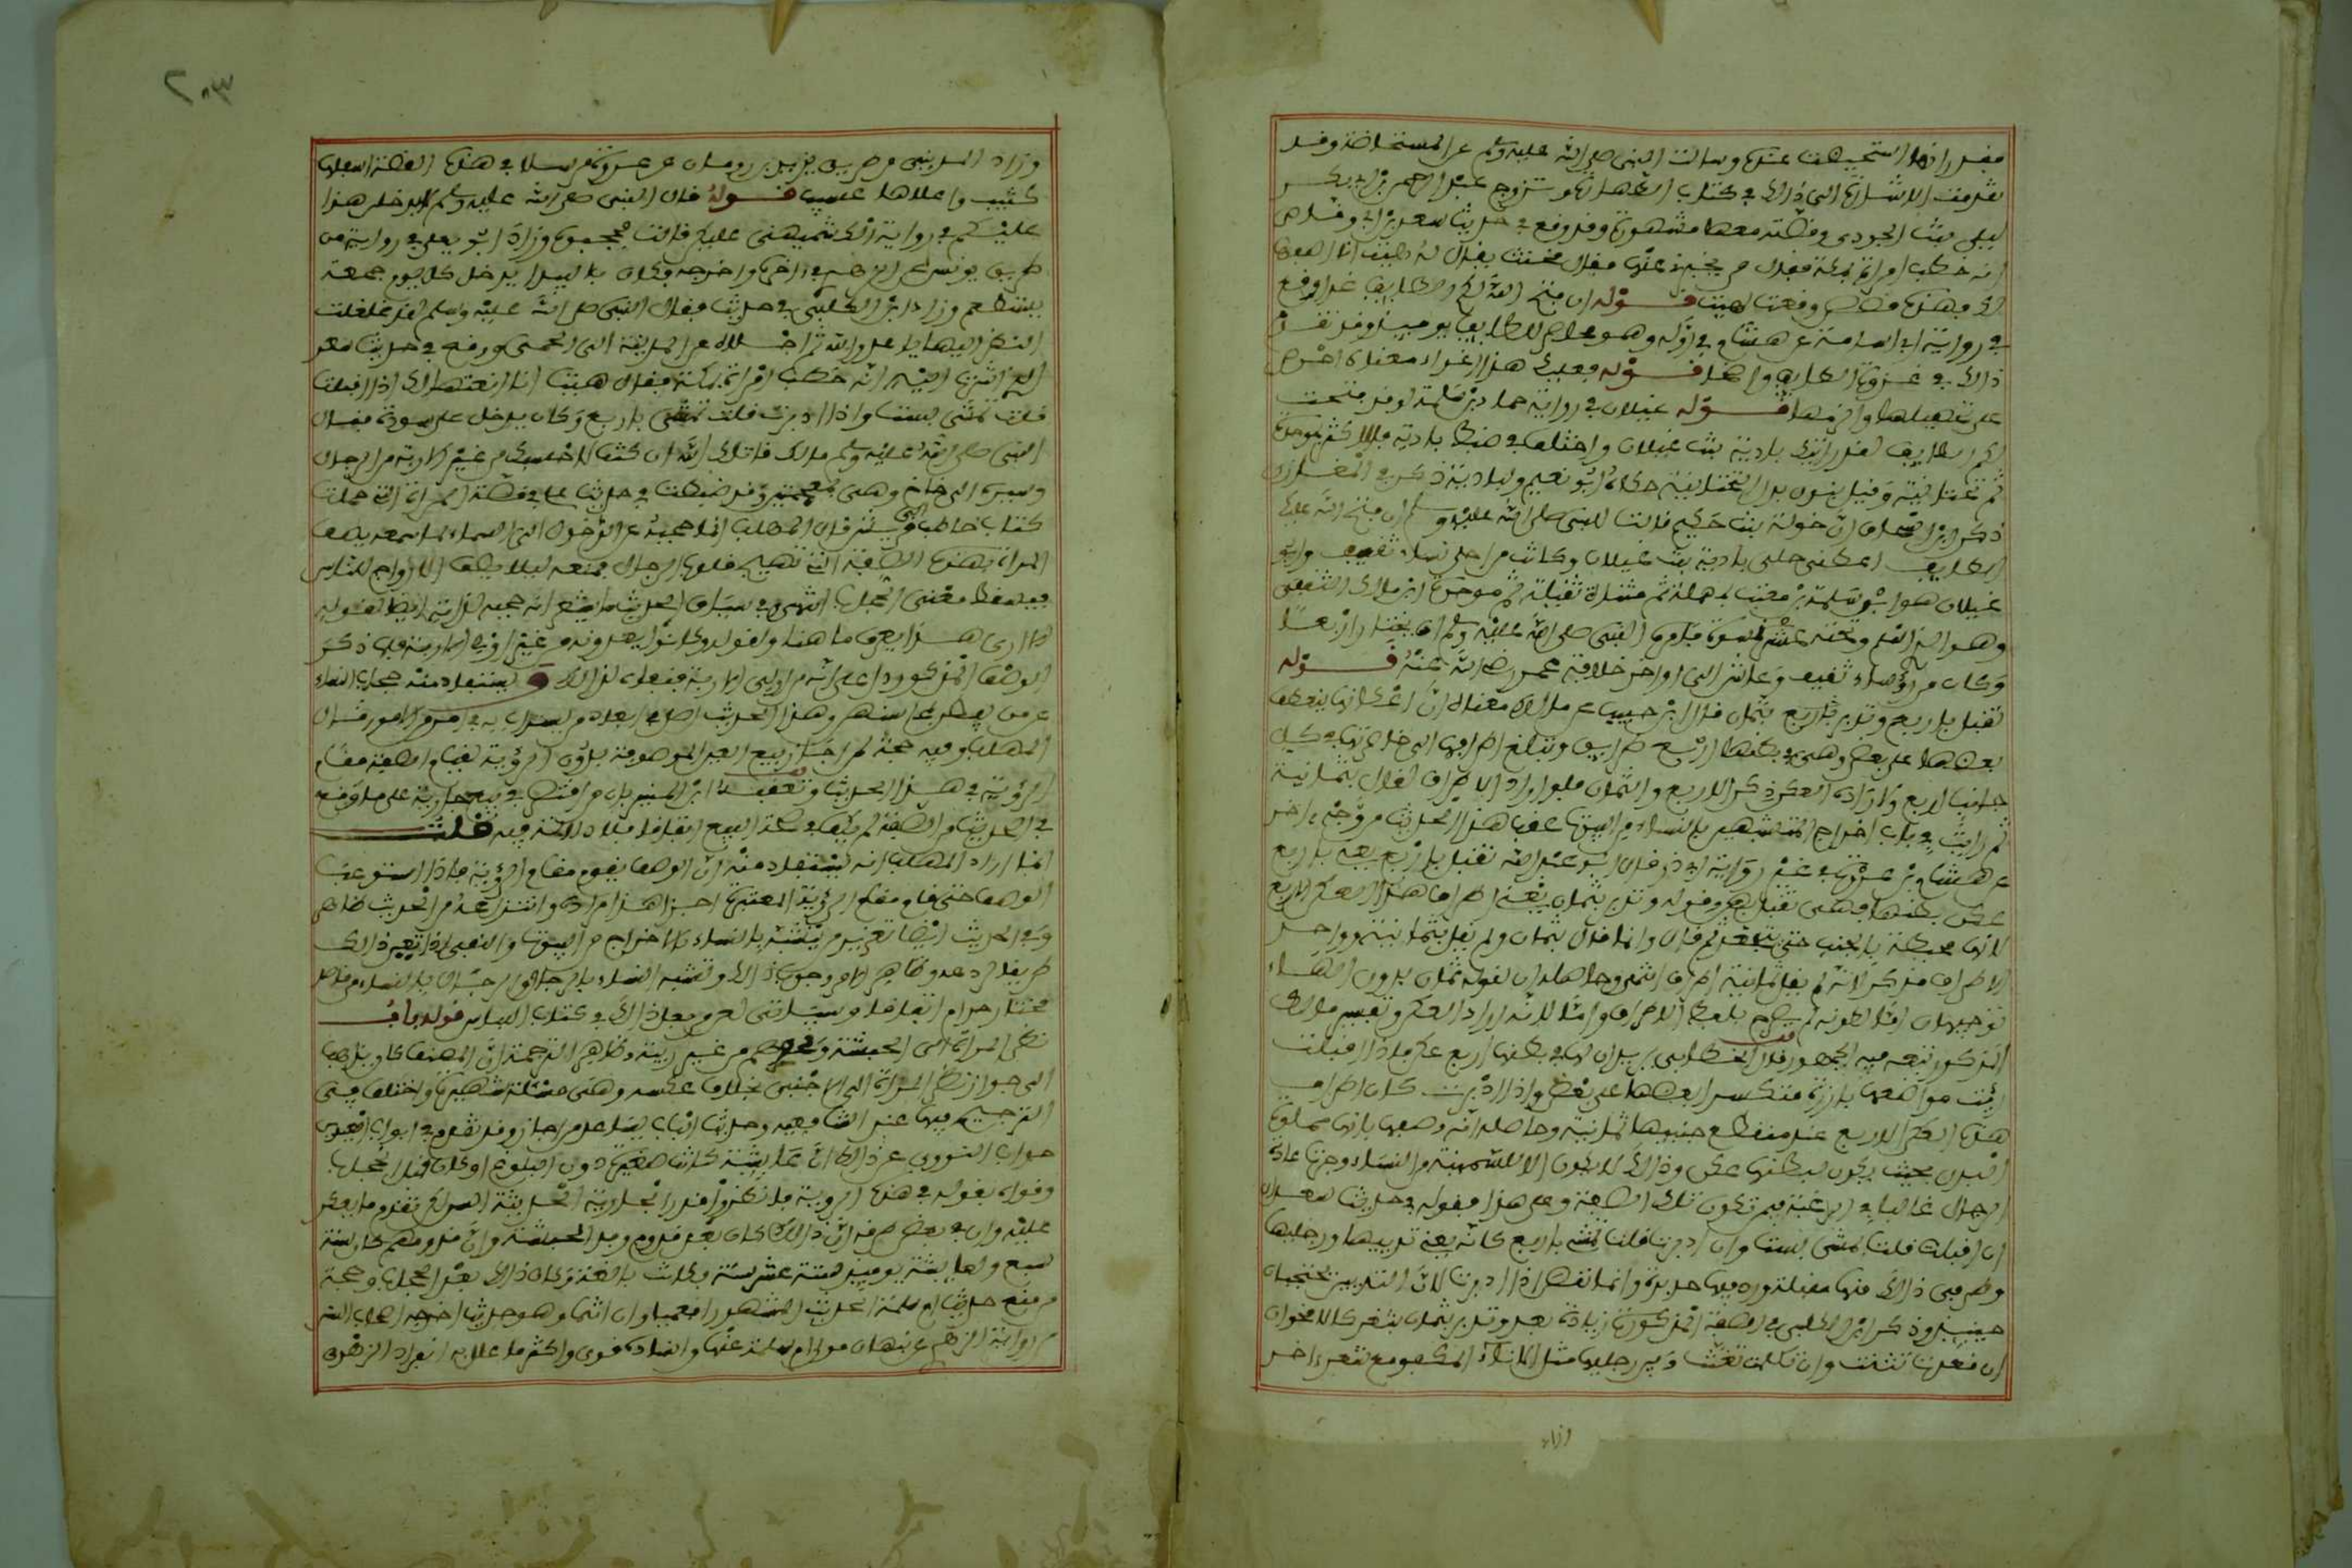 فقد رانها استحيضت عنده وسالت النبي صلى الله عليه وسلم عن المستحاضة وقد
تقدمت الاشارة الى ذالك في كتاب الطهارة وتزوج عبد الرحمن بن ابي بكر
ليلى بنت الجودي وقصته معها مشهورة وقد وقع في حديث سعد بن ابي وقاص
انه خطب امراة بمكة فقال من يخبرني عنها فقال مخنث يقال له هيت انا اصفها
لك فهذه قصص وقعت لهيت قوله ان فتح الله لكم الطايف غدا وقع
في رواية ابي اسامة عن هشام في اوله وهو محاصر للطايف يوميذ وقد تقدم
ذالك في غزوة الطايف واضحا قوله فعليك هذا اغراء معناه احرص
على تحصيلها والزمها قوله غيلان في رواية حماد بن سلمة لو قد فتحت
لكم الطايف لقد اريتك بادية بنت غيلان واختلف في ضبط بادية فالاكثر بموحدة
ثم تحتانية وقيل بنون بدل التحتانية حكاه ابو نعيم ولبادية ذكر في المغازي
ذكر ابن اسحاق ان خولة بنت حكيم قالت للنبي صلى الله عليه وسلم ان فتح الله عليك
الطايف اعطني حلي بادية بنت غيلان وكانت من احلى نساء ثقيف و
غيلان هو ابن سلمة بن معتب بمهملة ثم مثناة ثقيلة ثم موحدة ابن مالك الثقفي
وهو الذي اسلم وتحته عشر نسوة فامره النبي صلى الله عليه وسلم ان يختار اربعا
وكان من رؤساء ثقيف وعاش الى اواخر خلافة عمر رضي الله عنه قوله
تقبل باربع وتدبر بثمان قال ابن حبيب عن مالك معناه ان اعكانها ينعطف
بعضها على بعض وهي في بطنها اربع طرايق وتبلغ اطرافها الى خاصرتها في كل
جانب اربع ولارادة العكن ذكر الاربع والثمان فلو اراد الاطراف لقال بثمانية
ثم رايت في باب اخراج المتشبهين بالنساء من البيوت عقب هذا الحديث من وجه اخر
عن هشام بن عروة في غير رواية ابي ذر قال ابو عبد الله تقبل باربع يعني باربع
عكن ببطنها فهي تقبل بهن وقوله وتدبر بثمان يعني اطراف هذه العكن الاربع
لانها محيطة بالجنب حتى تتجعد ثم قال وانما قال بثمان ولم يقل بثمانية وواحد
الاطراف مذكر لانه لم يقل ثمانية اطراف انتهى وحاصله ان لقوله ثمان بدون الهاء
توجيهان اما لكونه لم يصرح بلفظ الاطراف واما لانه اراد العكن وتفسير مالك
المذكور تبعه فيه الجمهور قال الخطابي يريد ان لها في بطنها اربع عكن فاذا اقبلت
رئيت مواضعها بارزة متكسرا بعضها على بعض واذا ادبرت كان اطراف
هذه العكن الاربع عند منقطع جنبيها ثمانية وحاصله انه وصفها بانها مملوة
البدن بحيث يكون لبطنها عكن وذالك لا يكون الا للسمينة من النساء وجرت عادة
الرجال غالبا في الرغبة فيمن تكون تلك الصفة وعلى هذا فقوله في حديث سعد
ان اقبلت قلت تمشي بست وان ادبرت قلت تمشي باربع كانه يعني ثدييها ورجليها
وطرفي ذالك منها مقبلة وردفيها مدبرة وانما نقص اذا ادبرت لان الثديين يحتجبان
حينيذ وذكر ابن الكلبي في الصفة المذكورة زيادة بعد وتدبر بثمان بثغر كالاقحوان
ان قعدت تثنت وان تكلمت تغنت وبين رجليها مثل الاناء المكفوء مع شعر اخر
وزاد
٢٠٣
وزاد المديني من طريق يزيد بن رومان عن عروة مرسلا في هذه القصة اسفلها
كثيب واعلاها عسيب قوله فقال النبي صلى الله عليه وسلم لا يدخلن هذا
عليكم في رواية الكشميهني عليكن قالت فحجبوه وزاد ابو يعلى في رواية من
طريق يونس عن الزهري في اخره واخرجه فكان بالبيداء يدخل كل يوم جمعة
يستطعم وزاد ابن الكلبي في حديث فقال النبي صلى الله عليه وسلم لقد غلغلت
النظر اليها يا عدو الله ثم اجلاه عن المدينة الى الحمى ووقع في حديث سعد
الذي اشرت اليه انه خطب امراة بمكة فقال هيت انا انعتها لك اذا اقبلت
قلت تمشي بست واذا ادبرت قلت تمشي باربع وكان يدخل على سودة فقال
النبي صلى الله عليه وسلم مالك قاتلك الله ان كنت لاحسبك من غير اولي الاربة من الرجال
وسيره الى خاخ وهي بمعجمتين وقد ضبطت في حديث علي في قصة المراة التي حملت
كتاب حاطب الى قريش قال المهلب انما حجبه عن الدخول الى النساء لما سمعه يصف
المراة بهذه الصفة التي تهيج قلوب الرجال فمنعه ليلا يصف الازواج للناس
فيسقط معنى الحجاب انتهى وفي سياق الحديث ما يشعر انه حجبه لذاته ايضا لقوله
لا ارى هذا يعرف ما هاهنا ولقوله وكانوا يعدونه من غير اولي الاربة فلما ذكر
الوصف المذكور دل على انه من اولي الاربة فنفاه لذالك ويستفاد منه حجب النساء
عن من يفطن لمحاسنهن وهذا الحديث اصل في ابعاد من يستراب به في امر من الامور قال
المهلب وفيه حجة لمن اجاز بيع العين الموصوفة بدون الرؤية لقيام الصفة مقام
الرؤية في هذا الحديث وتعقبه ابن المنير بان من اقتصر في بيع جارية على ما وقع
في الحديث من الصفة لم يكف في صحة البيع اتفاقا فلا دلالة فيه قلت
انما اراد المهلب انه يستفاد منه ان الوصف يقوم مقام الرؤية فاذا استوعب
الوصف حتى قام مقام الرؤية المعتبرة اجزا هذا مراده وانتزاعه من الحديث ظاهر
وفي الحديث ايضا تعزير من يتشبه بالنساء بالاخراج من البيوت والنفي اذا تعين ذالك
طريقا لردعه وظاهر الامر وجوب ذالك وتشبه النساء بالرجال والرجال بالنساء من قاصد
مختار حرام اتفاقا وسياتي لعن من فعل ذالك في كتاب اللباس قوله باب
نظر المراة الى الحبشة ونحوهم من غير ريبة وظاهر الترجمة ان المصنف كان يذهب
الى جواز نظر المراة الى الاجنبي بخلاف عكسه وهي مسئلة شهيرة واختلف في
الترجيح فيها عند الشافعية وحديث الباب يساعد من اجاز وقد تقدم في ابواب العيد
جواب النووي عن ذالك ان عايشة كانت صغيرة دون البلوغ او كان قبل الحجاب
وقواه بقوله في هذه الرواية فاقدروا قدر الجارية الحديثة السن لكن تقدم ما يعكر
عليه وان في بعض طرقه ان ذالك كان بعد قدوم وفد الحبشة وان قدومهم كان سنة
سبع ولعايشة يوميذ ستة عشر سنة فكانت بالغة وكان ذالك بعد الحجاب وحجة
من منع حديث ام سلمة الحديث المشهور افعمياوان انتما وهو حديث اخرجه اصحاب السنن
من رواية الزهري عن نبهان مولى ام سلمة عنها واسناده قوي واكثر ما علل به انفراد الزهري